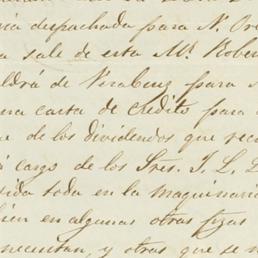 ria despachada para N. Or
a sale de esta Mr. Rober
ldrá de Veracruz para
una carta de crédito para
e de los dividendos que rec
á cargo de los Sres. J. L.
tida toda en la maquinari
bien en algunas otras
necesitan, y otras que se n